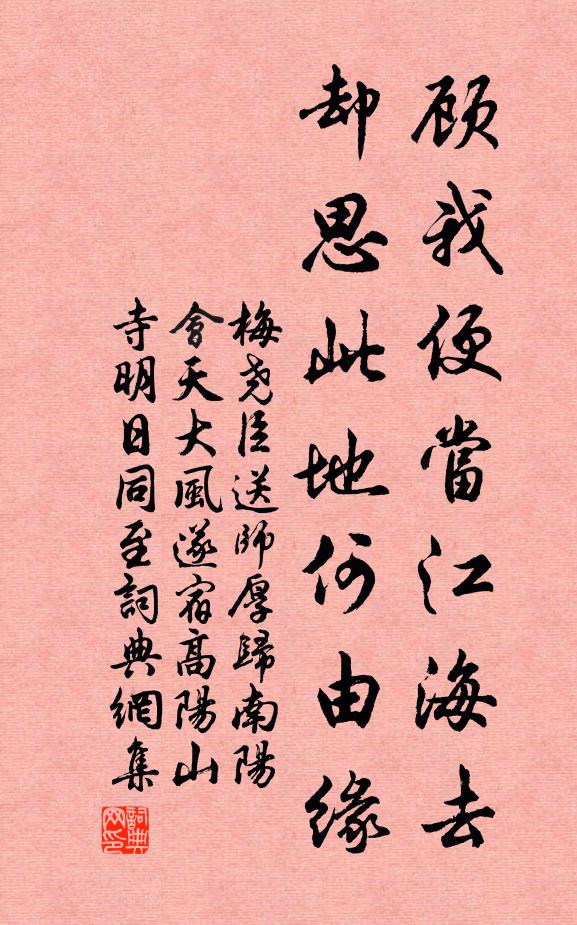 顾我便當江海去
却思此地何由缘
梅尧臣送師厚歸南陽
會天大風遂宿高陽山
寺明日同至詞典網集
詞典
网印